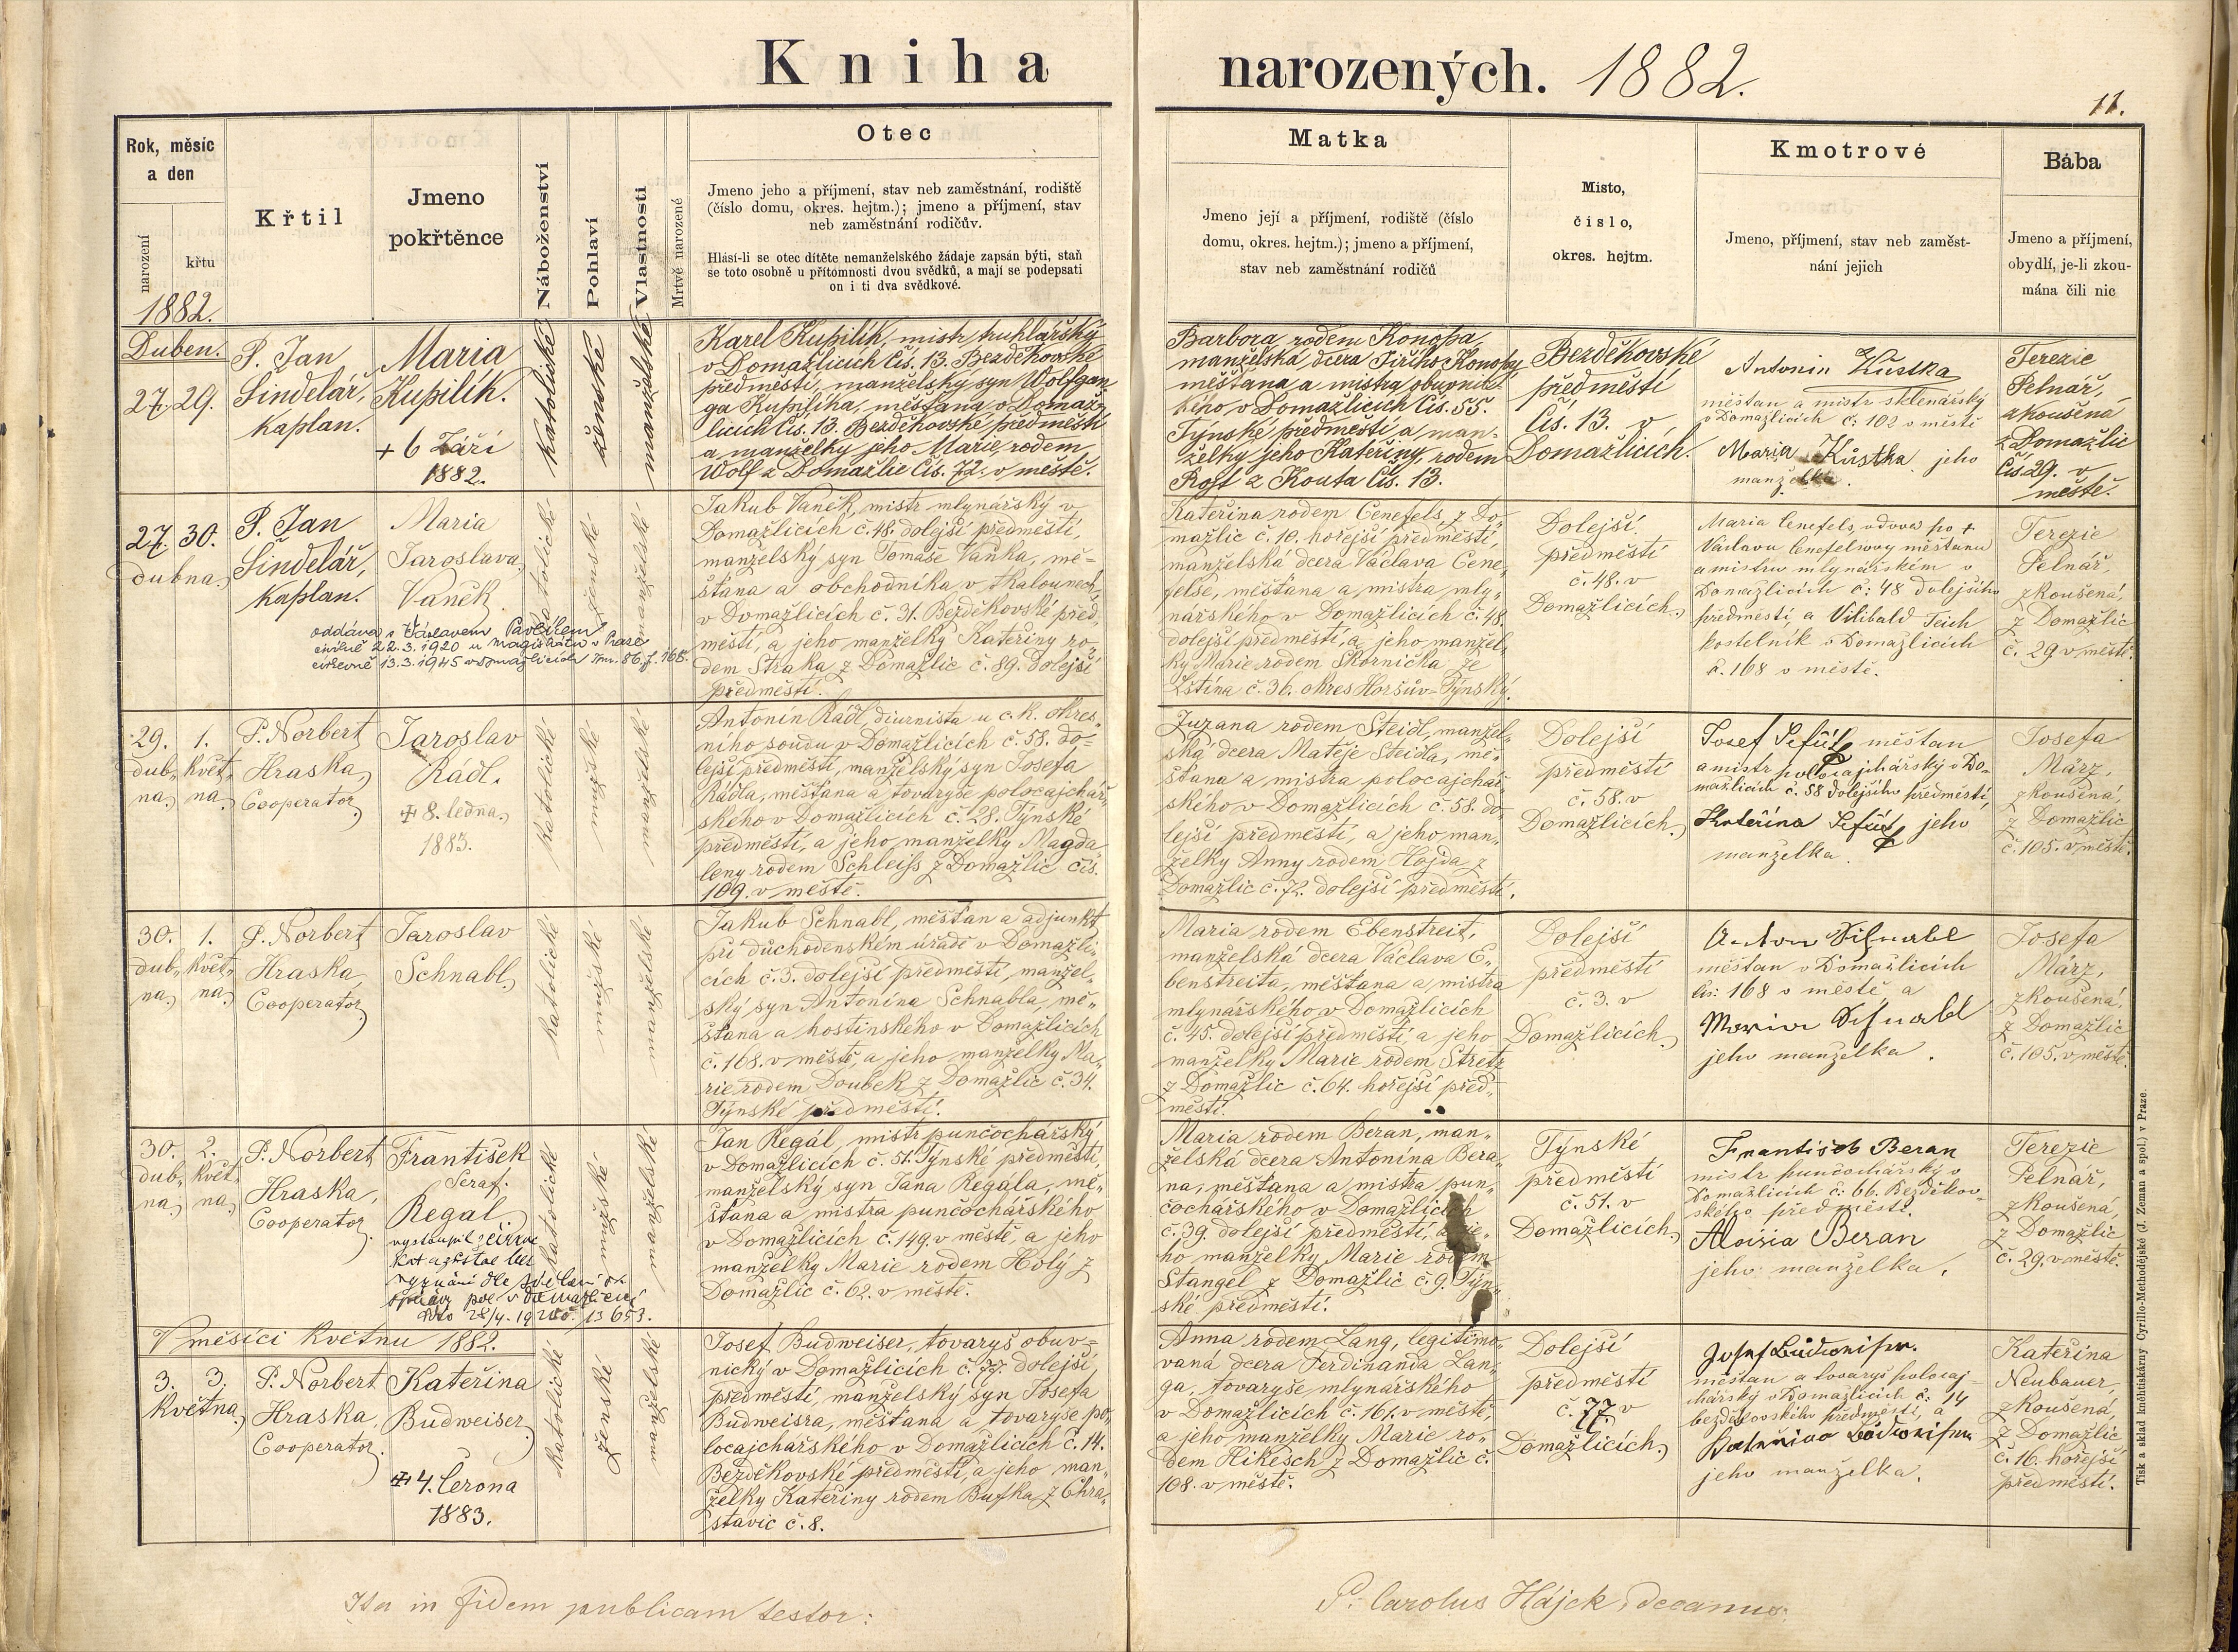 Kniha narozených. 1882.
11.
Rok, měsíc
a den
narození
křtu
1882.
Křtil
Jmeno
pokřtěnce
Náboženství
Pohlaví
Vlastnosti
Mrtvě narozené
Otec
Jmeno jeho a příjmení, stav neb zaměstnání, rodiště
(číslo domu, okres. hejtm.); jmeno a příjmení, stav
neb zaměstnání rodičův.
Hlásí-li se otec dítěte nemanželského žádaje zapsán býti, staň
se toto osobně u přítomnosti dvou svědků, a mají se podepsati
on i ti dva svědkové.
Matka
Jmeno její a příjmení, rodiště (číslo
domu, okres. hejtm.); jmeno a příjmení,
stav neb zaměstnání rodičů
Místo,
číslo,
okres. hejtm.
Kmotrové
Jmeno, příjmení, stav neb zaměst-
nání jejich
Bába
Jmeno a příjmení,
obydlí, je-li zkou-
mána čili nic
Duben.
27. 29.
P. Jan
Šindelář,
kaplan.
Maria
Kupilík.
+ 6 Září
1882.
katolické
ženské
manželské
Karel Kupilík, mistr truhlářský
v Domažlicích čís. 13. Bezděkovské
předměstí, manželský syn Wolfgan
ga Kupilíka, měšťana v Domaž-
licích čís. 13. Bezděkovské předměstí
a manželky jeho Marie, rodem
Wolf z Domažlic čís. 72. v městě.
Barbora rodem Konopa,
manželská dcera Jiřího Konopy
měšťana a mistra obuvnic-
kého v Domažlicích čís. 55.
Týnské předměstí a man-
želky jeho Kateřiny, rodem
Rost z Kouta čís. 13.
Bezděkovské
předměstí
čís. 13. v
Domažlicích.
Antonin Kůstka
měšťan a mistr sklenářský
v Domažlicích č: 102 v městě
Maria Kůstka jeho
manželka.
Terezie
Pelnář,
zkoušená
z Domažlic
čís. 29. v
městě.
27. 30.
dubna.
P. Jan
Šindelář,
kaplan.
Maria
Jaroslava
Vaněk
oddána s Václavem Pavlíkem
civilně 22.3.1920 u magistrátu v Praze
církevně 13.3.1945 v Domažlicích tom. 86, f. 168.
katolické
ženské
manželské
Jakub Vaněk, mistr mlynářský v
Domažlicích č. 48. dolejší předměstí,
manželský syn Tomáše Vaňka, mě-
šťana a obchodníka v tkalounech
v Domažlicích č. 31. Bezděkovské před-
městí, a jeho manželky Kateřiny ro-
dem Straka z Domažlic č. 89. dolejší
předměstí.
Kateřina rodem Cenefels, z Do-
mažlic č. 10. hořejší předměstí,
manželská dcera Václava Cene-
felse, měšťana a mistra mly-
nářského v Domažlicích č. 48.
dolejší předměstí, a jeho manžel-
ky Marie rodem Skornička ze
Lštína č. 36. okres Horšův-Týnský.
Dolejší
předměstí
č. 48. v
Domažlicích.
Maria Cenefels, vdova po +
Václavu Cenefelsovy měšťanu
a mistru mlynářském v
Domažlicích č: 48 dolejšího
předměstí, a Vilibald Teich
kostelník v Domažlicích
č. 168 v městě.
Terezie
Pelnář,
zkoušená,
z Domažlic
č. 29. v městě.
29. 1.
dub- květ-
na. na.
P. Norbert
Hraska,
Cooperator.
Jaroslav
Rádl.
+ 8. ledna
1883.
katolické
mužské
manželské
Antonín Rádl, diurnista u c. k. okres-
ního soudu v Domažlicích č. 58. do-
lejší předměstí, manželský syn Josefa
Rádla, měšťana a tovaryše polocajchař-
ského v Domažlicích č. 28. Týnské
předměstí, a jeho manželky Magda-
leny rodem Schleiss z Domažlic čís.
109. v městě.
Zuzana rodem Steidl, manžel-
ská dcera Matěje Steidla, mě-
šťana a mistra polocajchař-
ského v Domažlicích č. 58. do-
lejší předměstí, a jeho man-
želky Anny rodem Hojda z
Domažlic č. 72. dolejší předměstí.
Dolejší
předměstí
č. 58. v
Domažlicích.
Josef měšťan
a mistr polocajchářský v Do-
mažlicích č. 58 dolejšího předměstí,
Kateřina jeho
manželka.
Josefa
März,
zkoušená,
z Domažlic
č. 105. v městě.
30. 1.
dub- květ-
na. na.
P. Norbert
Hraska,
Cooperator.
Jaroslav
Schnabl.
katolické
mužské
manželské
Jakub Schnabl, měšťan a adjunkt
při důchodenském úřadě v Domažli-
cích č. 3. dolejší předměstí, manžel-
ský syn Antonína Schnabla, mě-
šťana a hostinského v Domažlicích
č. 168. v městě, a jeho manželky Ma-
rie rodem Doubek z Domažlic č. 34.
Týnské předměstí.
Maria rodem Ebenstreit,
manželská dcera Václava E-
benstreita, měšťana a mistra
mlynářského v Domažlicích
č. 45. dolejší předměstí, a jeho
manželky Marie rodem Stretz
z Domažlic č. 64. hořejší před-
městí.
Dolejší
předměstí
č. 3. v
Domažlicích.
Anton Schnabl
měšťan v Domažlicích
čís: 168 v městě a
Maria Schnabl
jeho manželka.
Josefa
März,
zkoušená,
z Domažlic
č. 105. v městě.
30. 2.
dub- květ-
na. na.
P. Norbert
Hraska,
Cooperator.
František
Seraf.
Regal.
vystoupil z církve
kat a zůstal bez
vyznání dle sdělení ok
správy pol v Domažlicích
13653.
katolické
mužské
manželské
Jan Regál, mistr punčochářský
v Domažlicích č. 51. Týnské předměstí,
manželský syn Jana Regála, mě-
šťana a mistra punčochářského
v Domažlicích č. 149. v městě, a jeho
manželky Marie rodem Holý z
Domažlic č. 62. v městě.
Maria rodem Beran, man-
želská dcera Antonína Bera-
na, měšťana a mistra pun-
čochářského v Domažlicích
č. 39. dolejší předměstí, a je-
ho manželky Marie rodem
Stangel z Domažlic č. 9. Týn-
ské předměstí.
Týnské
předměstí
č. 51. v
Domažlicích.
Františeb Beran
mistr punčochářský v
Domažlicích č: 66. Bezděkov-
ského předměstí.
Aloisia Beran
jeho manželka.
Terezie
Pelnář,
zkoušená,
z Domažlic
č. 29. v městě.
V měsíci květnu 1882.
3. 3.
května.
P. Norbert
Hraska,
Cooperator.
Kateřina
Budweiser.
+ 4. června
1883.
katolické
ženské
manželské
Josef Budweiser, tovaryš obuv-
nický v Domažlicích č. 77. dolejší
předměstí, manželský syn Josefa
Budweisra, měšťana a tovaryše po-
locajchařského v Domažlicích č. 14.
Bezděkovské předměstí, a jeho man-
želky Kateřiny rodem Bufka z Chra-
stavic č. 8.
Anna rodem Lang, legitimo-
vaná dcera Ferdinanda Lan-
ga, tovaryše mlynářského
v Domažlicích č. 161. v městě,
a jeho manželky Marie ro-
dem Hikesch z Domažlic č.
108. v městě.
Dolejší
předměstí
č. 77. v
Domažlicích.
Josef Budweiser.
měšťan a tovaryš polocaj-
chářský v Domažlicích č: 14
bezděkovského předměstí, a
Kateřina Budweiser
jeho manželka.
Kateřina
Neubauer,
zkoušená,
z Domažlic
č. 16. hořejší
předměstí.
Ita in fidem publicam testor:
P. Carolus Hájek, decanus.
Tisk a sklad knihtiskárny Cyrillo-Methodějské (J. Zeman a spol.) v Praze.